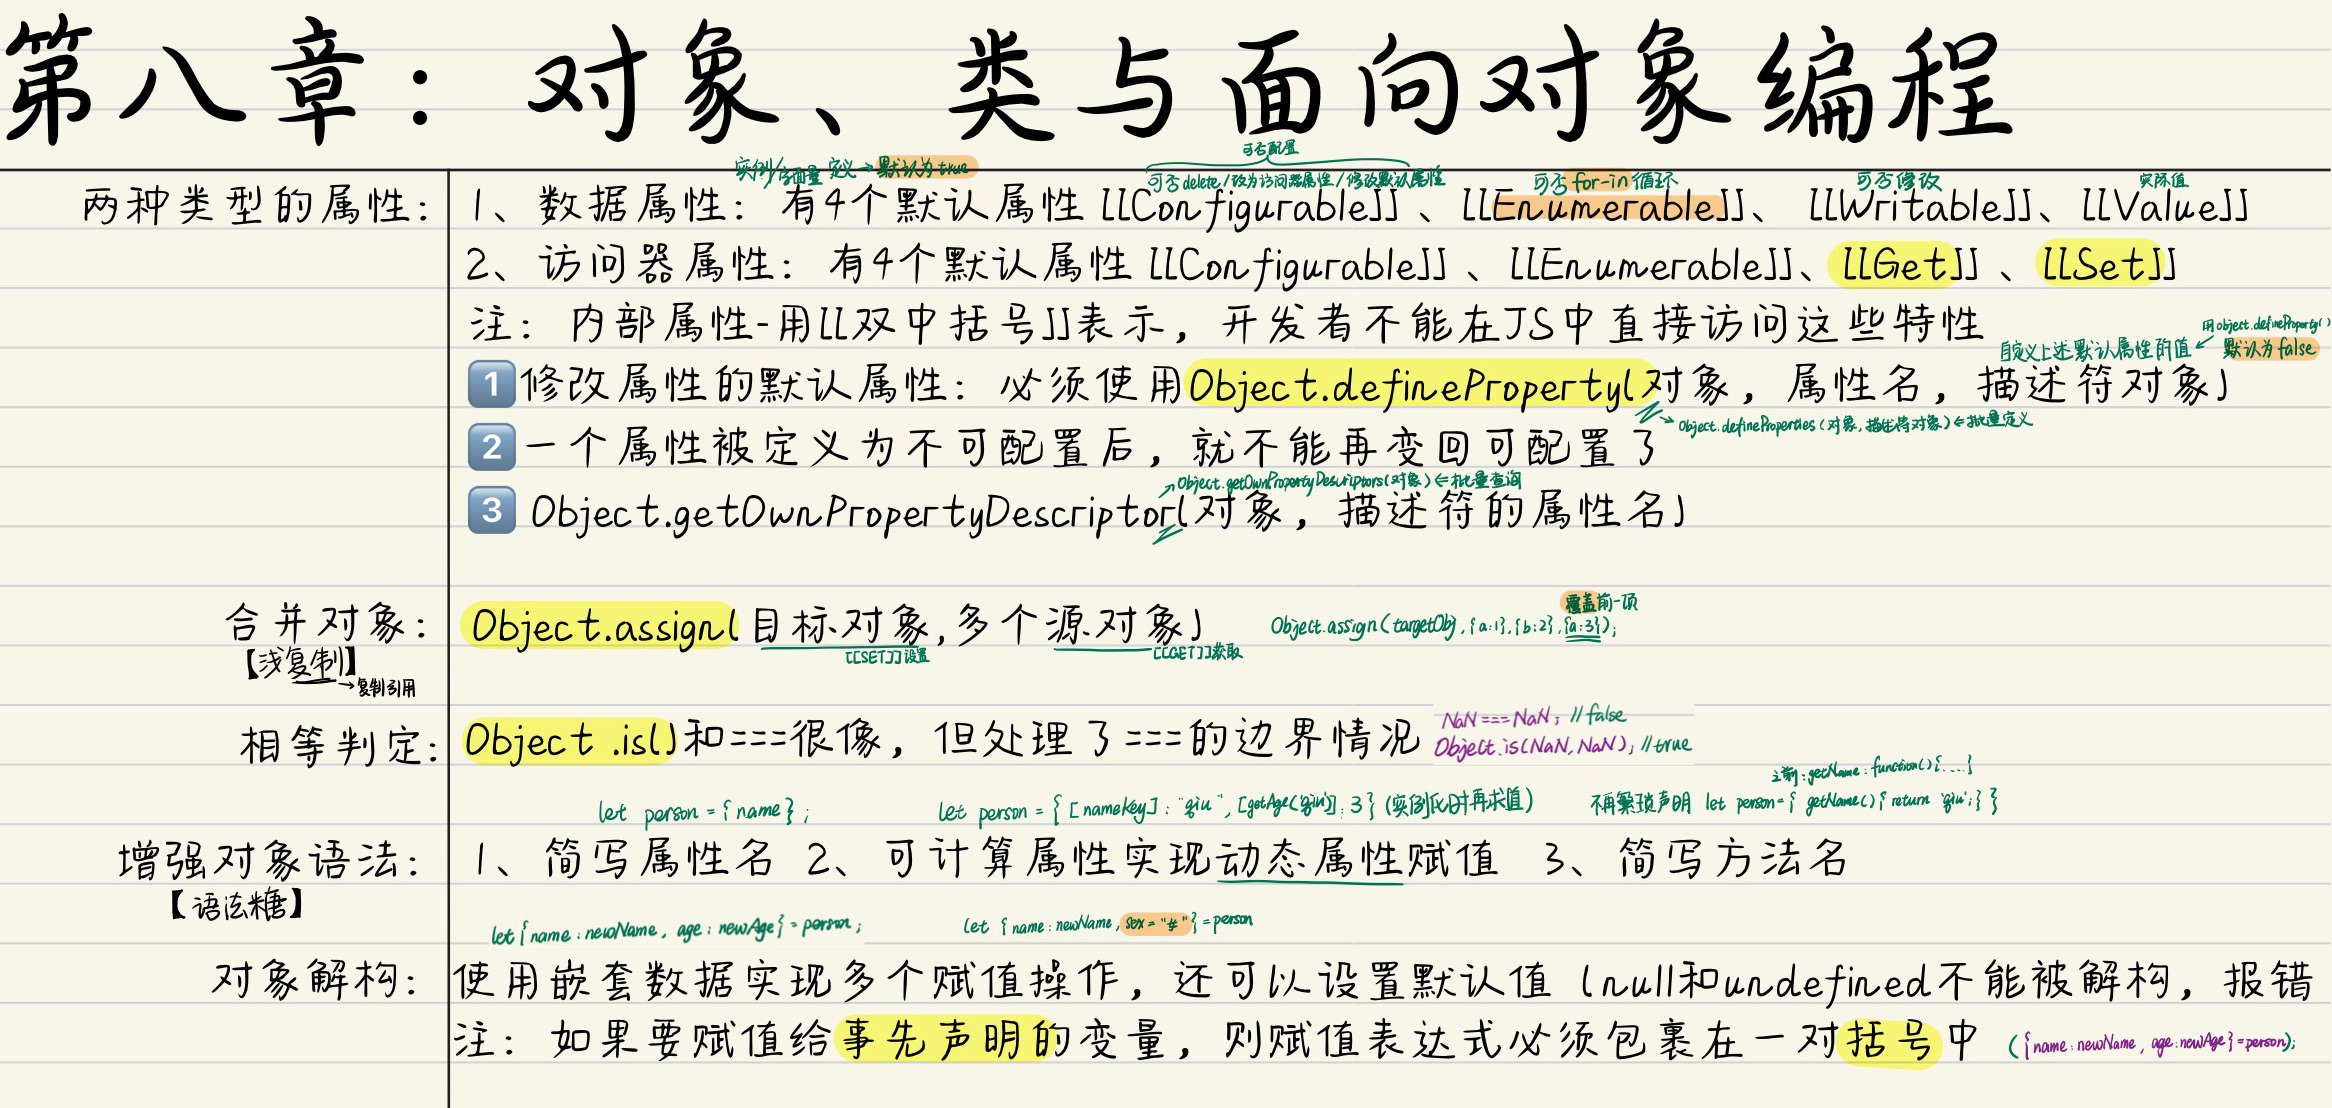 第八章：对象、类与面向对象编程
可否配置
实例/字面量 定义→默认为true
可否delete/改为访问器属性/修改默认属性
可否for-in循环
可否修改
实际值
两种类型的属性：
1、数据属性：有4个默认属性[[Configurable]]、[[Enumerable]]、[[Writable]]、[[Value]]
2、访问器属性：有4个默认属性[[Configurable]]、[[Enumerable]]、[[Get]]、[[Set]]
注：内部属性-用[[双中括号]]表示，开发者不能在JS中直接访问这些特性
用object.defineProperty()
自定义上述默认属性的值 ← 默认为false
1 修改属性的默认属性：必须使用Object.defineProperty(对象，属性名，描述符对象)
→Object.defineProperties(对象,描述符对象)⇐批量定义
2 一个属性被定义为不可配置后，就不能再变回可配置了
→Object.getOwnPropertyDescriptors(对象)⇐批量查询
3 Object.getOwnPropertyDescriptor(对象，描述符的属性名)
覆盖前一项
合并对象：
Object.assign(目标对象,多个源对象)
Object.assign(targetObj,{a:1},{b:2},{a:3});
【浅复制】
[[SET]]设置
[[GET]]获取
→复制引用
相等判定：
Object.is()和===很像，但处理了===的边界情况
NaN===NaN; //false
Object.is(NaN,NaN); //true
之前:getName:function(){....}
let person={name};
let person={[nameKey]:"qiu",[getAge('qiu')]:3}(实例化时再求值)
不再繁琐声明 let person={getName(){return 'qiu';}}
增强对象语法：
1、简写属性名 2、可计算属性实现动态属性赋值 3、简写方法名
【语法糖】
let{name:newName, age:newAge}=person;
let {name:newName,sex="女"}=person
对象解构：
使用嵌套数据实现多个赋值操作，还可以设置默认值(null和undefined不能被解构，报错
注：如果要赋值给事先声明的变量，则赋值表达式必须包裹在一对括号中
({name:newName, age:newAge}=person);